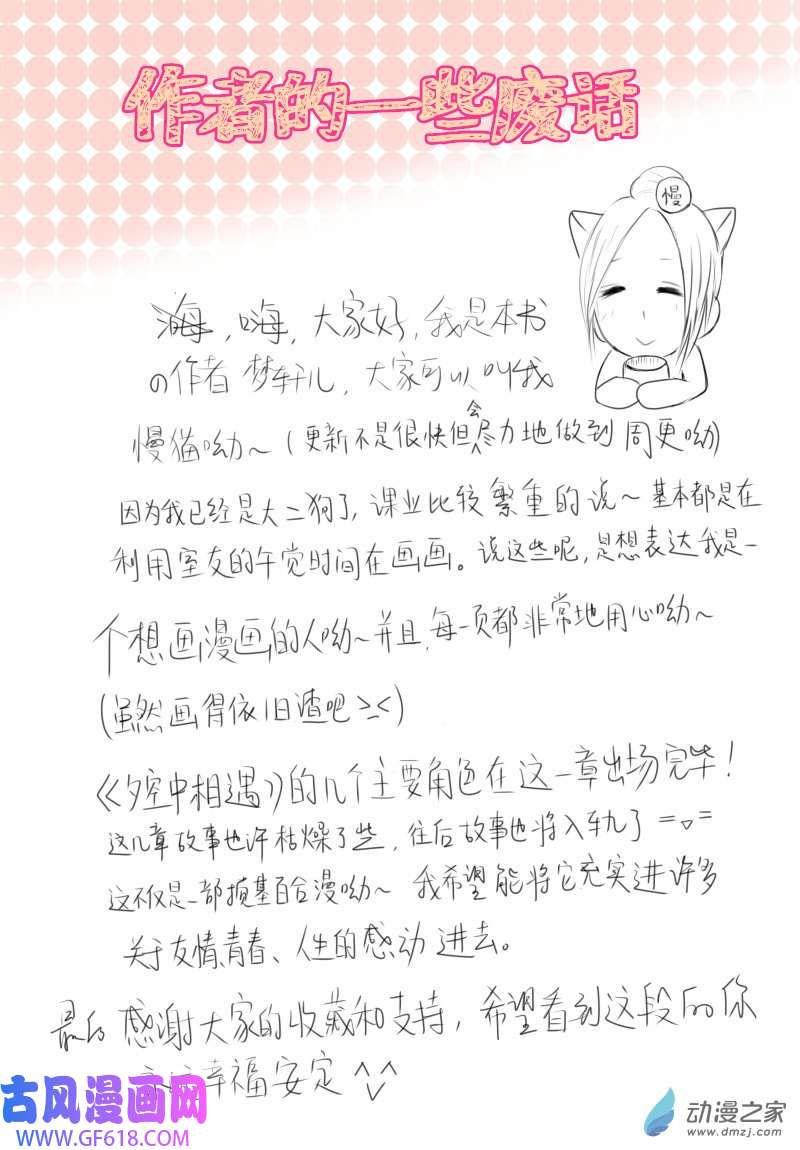 作者的一些废话
慢
海，嗨，大家好，我是本书
の作者 梦轩儿，大家可以叫我
慢猫呦～（更新不是很快但会尽力地做到周更呦）
因为我已经是大二狗了，课业比较繁重的说～基本都是在
利用室友的午觉时间在画画。说这些呢，是想表达我是一
个想画漫画的人呦～并且，每一页都非常地用心呦～
（虽然画得依旧渣吧>_<）
《夕空中相遇》的几个主要角色在这一章出场完毕！
这几章故事也许枯燥了些，往后故事也将入轨了=v=
这不仅是一部搅基百合漫呦～ 我希望能将它充实进许多
关于友情、青春、人生的感动进去。
最后 感谢大家的收藏和支持，希望看到这段的你
幸福安定 ^v^
古风漫画网
WWW.GF618.COM
动漫之家
www.dmzj.com